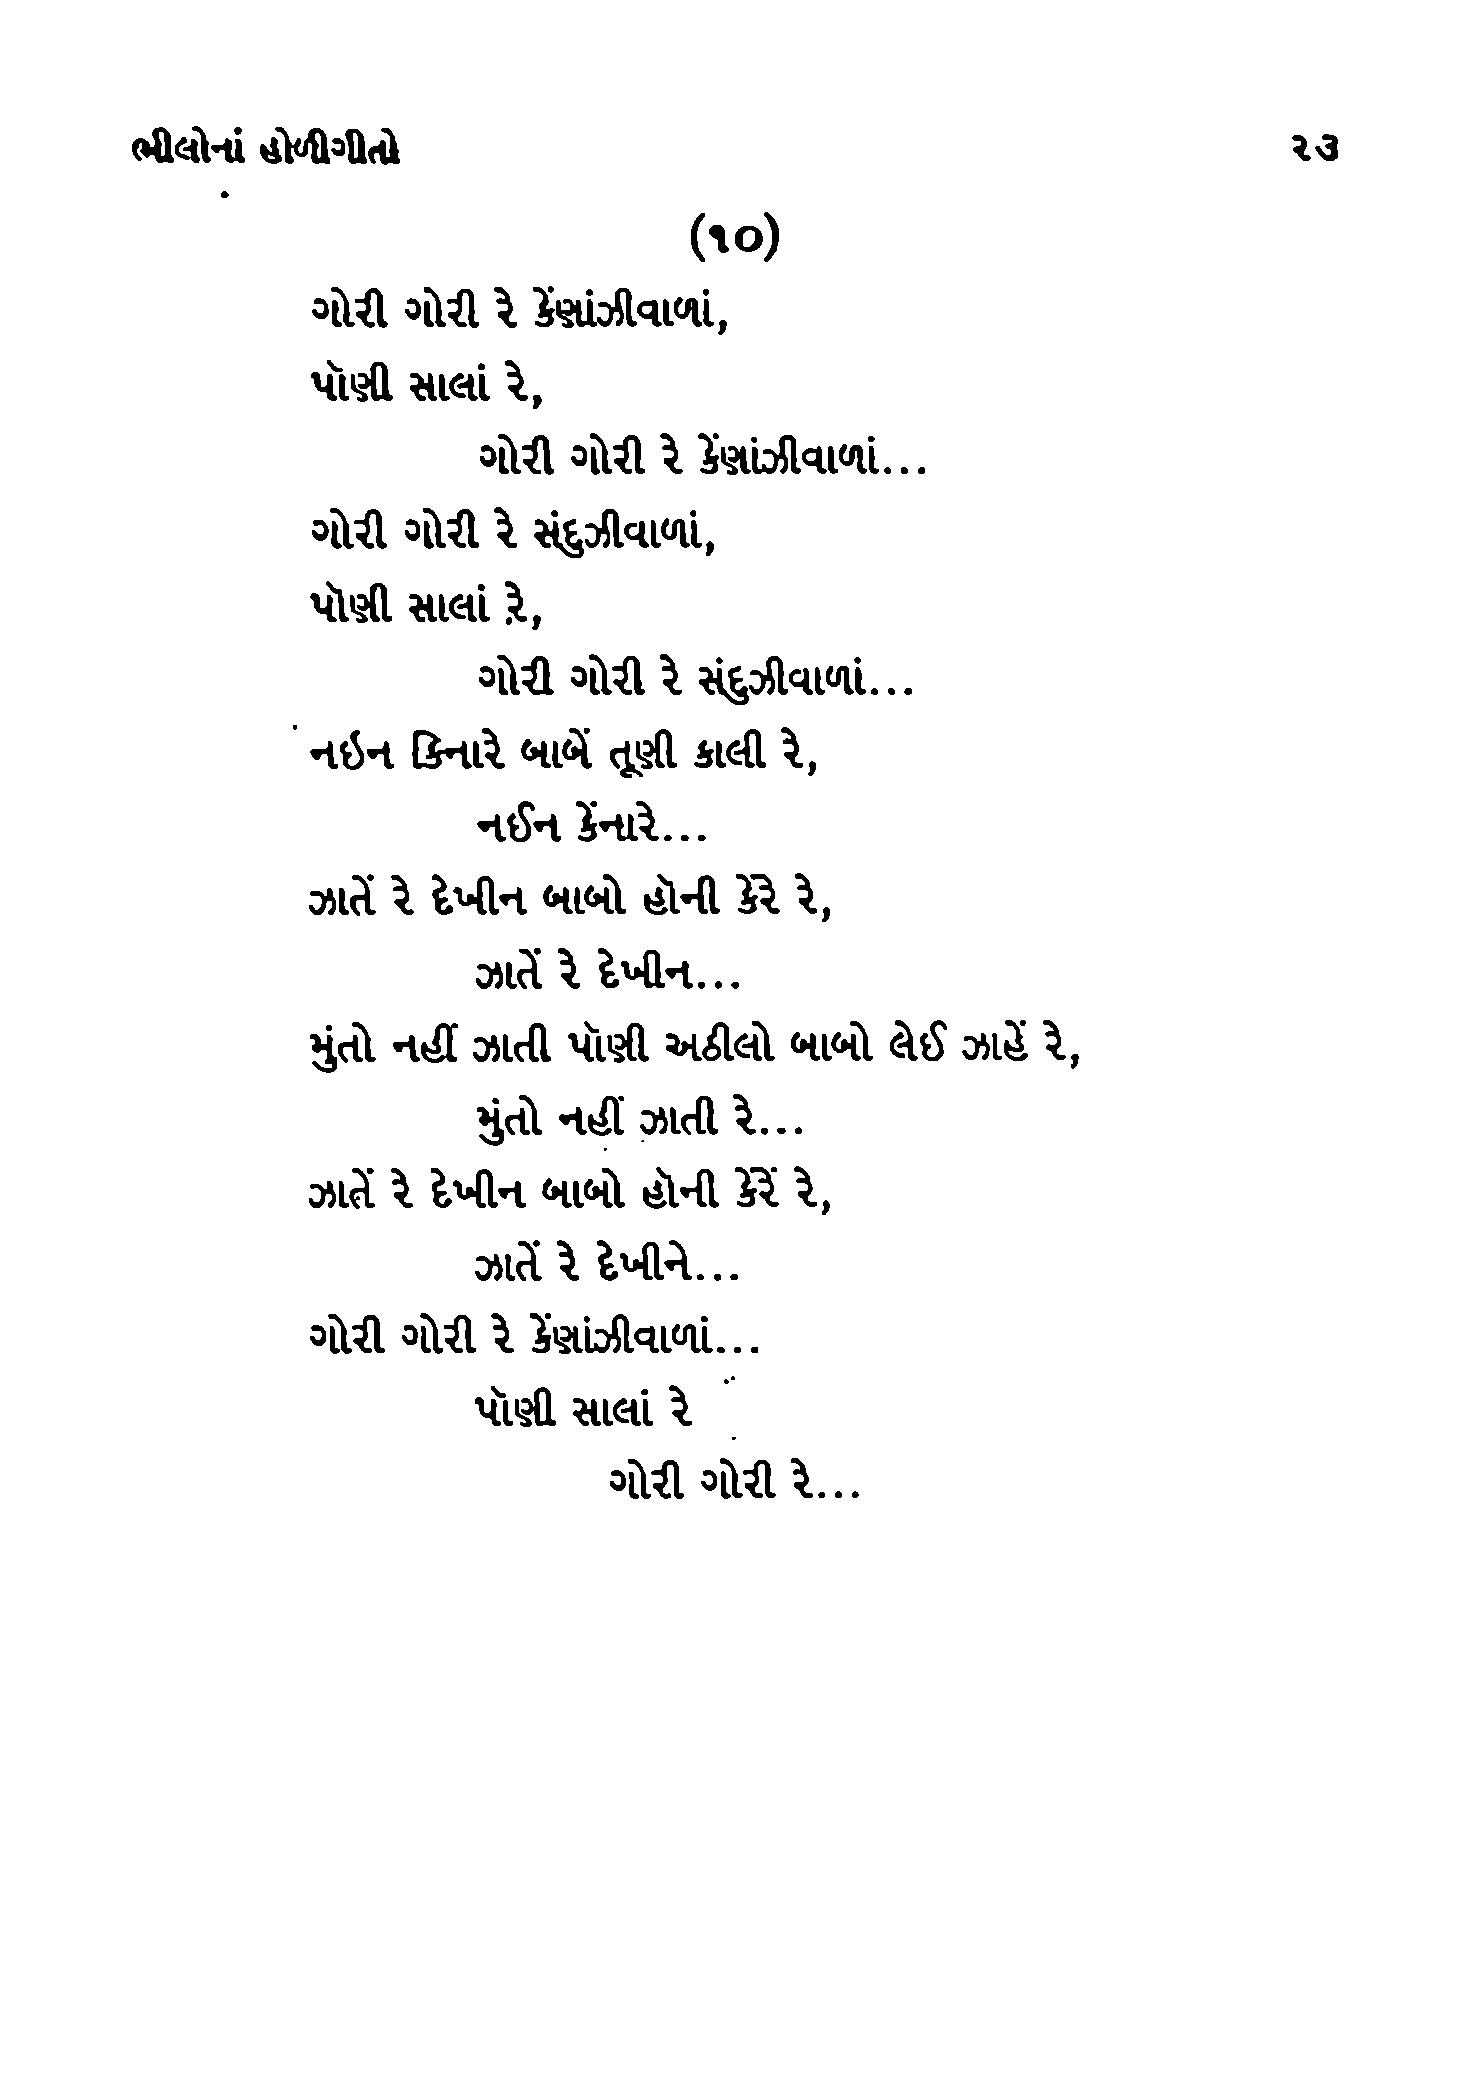 ભીલોનાં હોળીગીતો ૨૩
(૧૦)
ગોરી ગોરી રે કેંણાંઝીવાળાં,
પૉણી સાલાં રે,
ગોરી ગોરી રે કેંણાંઝીવાળાં...
ગોરી ગોરી રે સંદુઝીવાળાં,
પૉણી સાલાં રે,
ગોરી ગોરી રે સંદુઝીવાળાં...
નઇન કિનારે બાબેં તૂણી કાલી રે,
નઈન કેંનારે...
ઝાતેં રે દેખીન બાબો હૉની કેરે રે,
ઝાતેં રે દેખીન...
મુંતો નહીં ઝાતી પૉણી અઠીલો બાબો લેઈ ઝાહેં રે,
મુંતો નહીં ઝાતી રે...
ઝાતેં રે દેખીન બાબો હૉની કેરેં રે,
ઝાતેં રે દેખીને...
ગોરી ગોરી રે કેંણાંઝીવાળાં...
પૉણી સાલાં રે
ગોરી ગોરી રે...